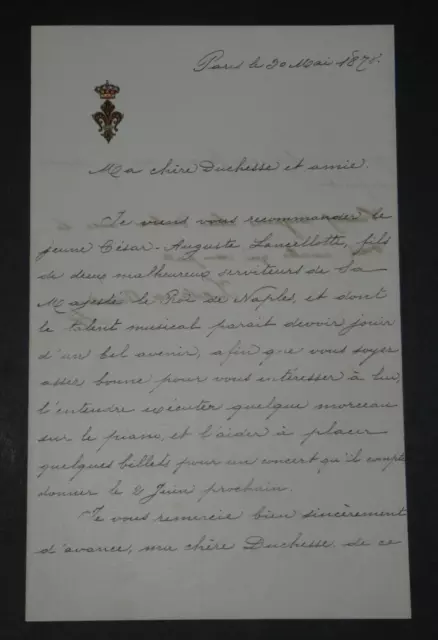 Paris le 20 Mai 1878.
Ma chère Duchesse et amie.
Je viens vous recommander le
jeune César-Auguste Lancellotte, fils
de deux malheureux serviteurs de Sa
Majesté le Roi de Naples, et dont
le talent musical parait devoir jouir
d'un bel avenir, afin que vous soyez
assez bonne pour vous intéresser à lui,
l'entendre exécuter quelque morceau
sur le piano, et l'aider à placer
quelques billets pour un concert qu'il compte
donner le 2 Juin prochain.
Je vous remercie bien sincèrement
d'avance, ma chère Duchesse de ce